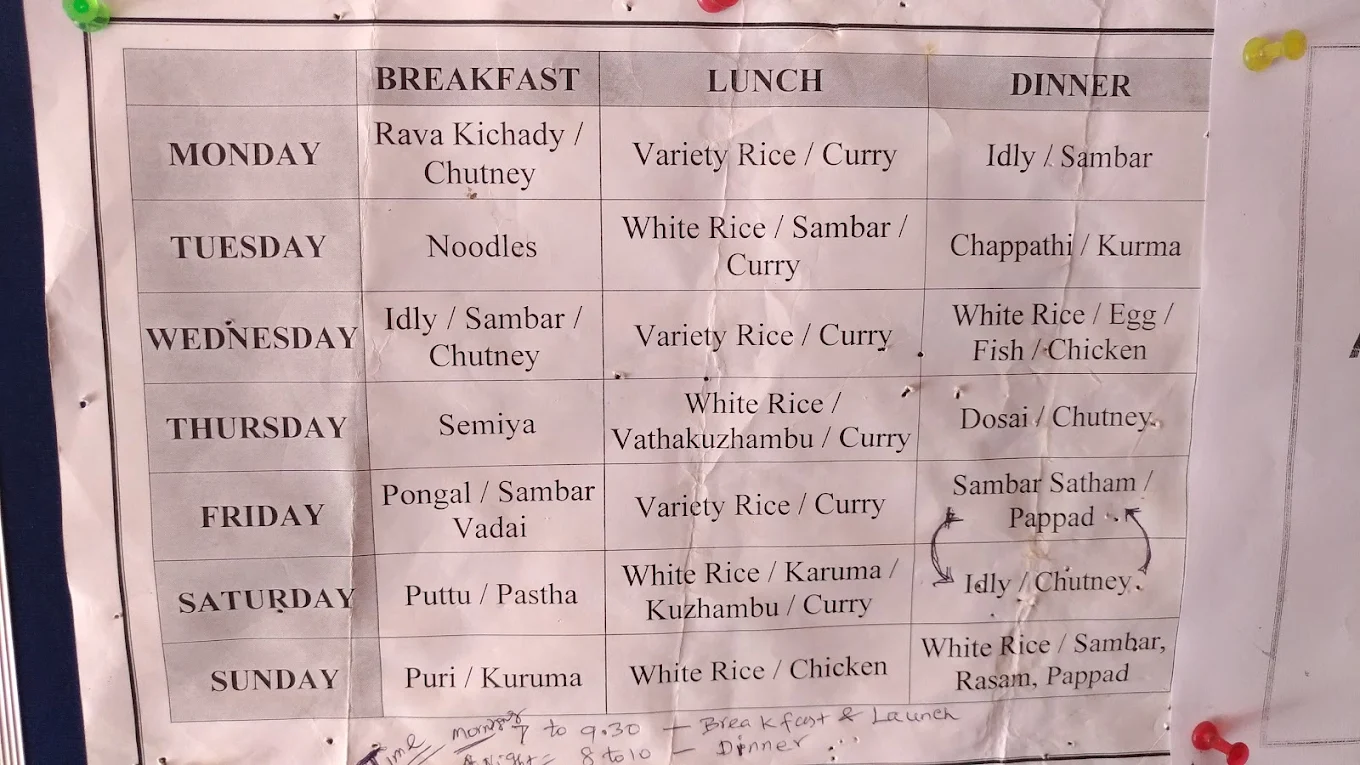 BREAKFAST LUNCH DINNER
MONDAY Rava Kichady / Chutney Variety Rice / Curry Idly / Sambar
TUESDAY Noodles White Rice / Sambar / Curry Chappathi / Kurma
WEDNESDAY Idly / Sambar / Chutney Variety Rice / Curry White Rice / Egg / Fish / Chicken
THURSDAY Semiya White Rice / Vathakuzhambu / Curry Dosai / Chutney
FRIDAY Pongal / Sambar Vadai Variety Rice / Curry Sambar Satham / Pappad
SATURDAY Puttu / Pastha White Rice / Karuma / Kuzhambu / Curry Idly / Chutney
SUNDAY Puri / Kuruma White Rice / Chicken White Rice / Sambar, Rasam, Pappad
Time morning 7 to 9.30 – Breakfast & Launch
Night = 8 to 10 – Dinner